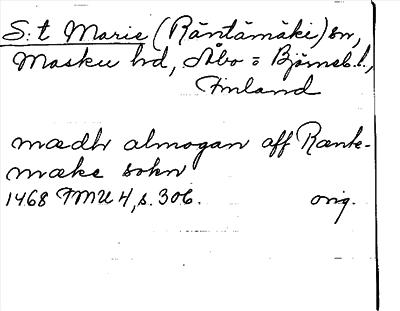 S:t Marie (Räntämäki) sn,
Masku hd, Åbo o Björneb. l.,
Finland
mædh almogan aff Rænke-
mæke sokn
1468 FMU 4, s. 306. orig.